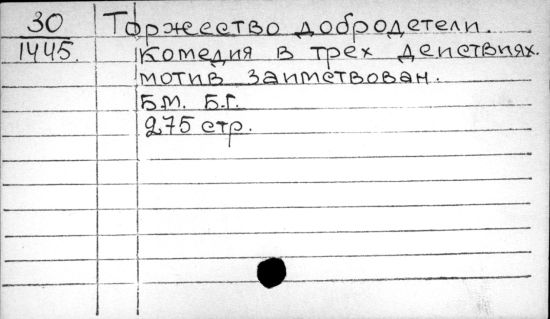 30 Торжество добродетели.
1445. Комедия в трех деиствиях.
мотив заимствован.
Б.М. Б.Г.
275 стр.